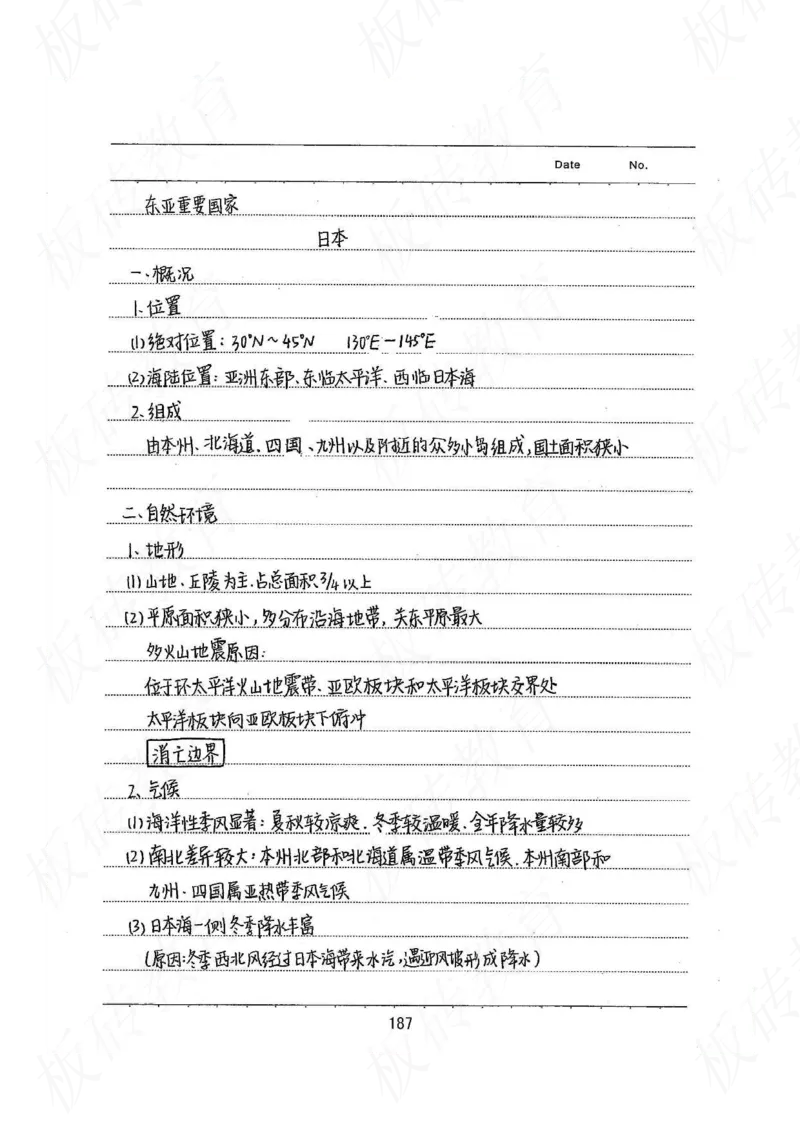 Date No.
东亚重要国家
日本
一、概况
1、位置
(1)绝对位置：30°N～45°N 130°E－145°E
(2)海陆位置：亚洲东部、东临太平洋、西临日本海
2、组成
由本州、北海道、四国、九州以及附近的众多小岛组成，国土面积狭小
二、自然环境
1、地形
(1)山地、丘陵为主、占总面积3/4以上
(2)平原面积狭小，多分布沿海地带，关东平原最大
多火山地震原因：
位于环太平洋火山地震带、亚欧板块和太平洋板块交界处
太平洋板块向亚欧板块下俯冲
消亡边界
2、气候
(1)海洋性季风显著：夏秋较凉爽、冬季较温暖、全年降水量较多
(2)南北差异较大：本州北部和北海道属温带季风气候、本州南部和
九州、四国属亚热带季风气候
(3)日本海一侧冬季降水丰富
(原因:冬季西北风经过日本海带来水汽，遇迎风坡形成降水)
187
板砖教育